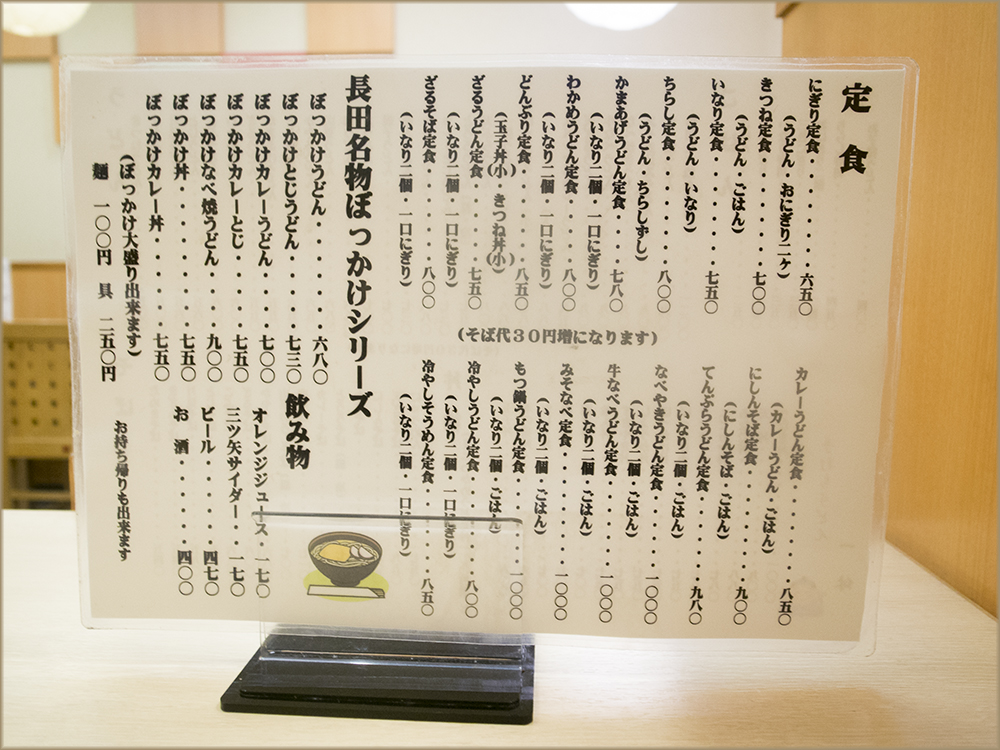 定食
にぎり定食・・・・・・・六五〇
(うどん・おにぎり二ヶ)
きつね定食・・・・・・・七〇〇
(うどん・ごはん)
いなり定食・・・・・・・七五〇
(うどん・いなり)
ちらし定食・・・・・・・八〇〇
(うどん・ちらしずし)
かまあげうどん定食・・・・七八〇
(いなり二個・一口にぎり)
わかめうどん定食・・・・・八〇〇
(いなり二個・一口にぎり)
どんぶり定食・・・・・・・八五〇
(玉子丼(小)・きつね丼(小))
ざるうどん定食・・・・・・七五〇
(いなり二個・一口にぎり)
ざるそば定食・・・・・・・八〇〇
(いなり二個・一口にぎり)
(そば代30円増になります)
カレーうどん定食・・・・・・八五〇
(カレーうどん・ごはん)
にしんそば定食・・・・・・・九〇〇
(にしんそば・ごはん)
てんぷらうどん定食・・・・・九八〇
(いなり二個・ごはん)
なべやきうどん定食・・・・・一〇〇〇
(いなり二個・ごはん)
牛なべうどん定食・・・・・・一〇〇〇
(いなり二個・ごはん)
みそなべ定食・・・・・・・・一〇〇〇
(いなり二個・ごはん)
もつ鍋うどん定食・・・・・・一〇〇〇
(いなり二個・ごはん)
冷やしうどん定食・・・・・・八〇〇
(いなり二個・一口にぎり)
冷やしそうめん定食・・・・・八五〇
(いなり二個・一口にぎり)
長田名物ぼっかけシリーズ
ぼっかけうどん・・・・・・・六八〇
ぼっかけとじうどん・・・・・七三〇
ぼっかけカレーうどん・・・・七〇〇
ぼっかけカレーとじ・・・・・七五〇
ぼっかけなべ焼うどん・・・・九〇〇
ぼっかけ丼・・・・・・・・・七五〇
ぼっかけカレー丼・・・・・・七五〇
(ぼっかけ大盛り出来ます)
麺 一〇〇円 具 二五〇円
飲み物
オレンジジュース・一七〇
三ツ矢サイダー・・一七〇
ビール・・・・・・四七〇
お酒・・・・・・・四〇〇
お持ち帰りも出来ます